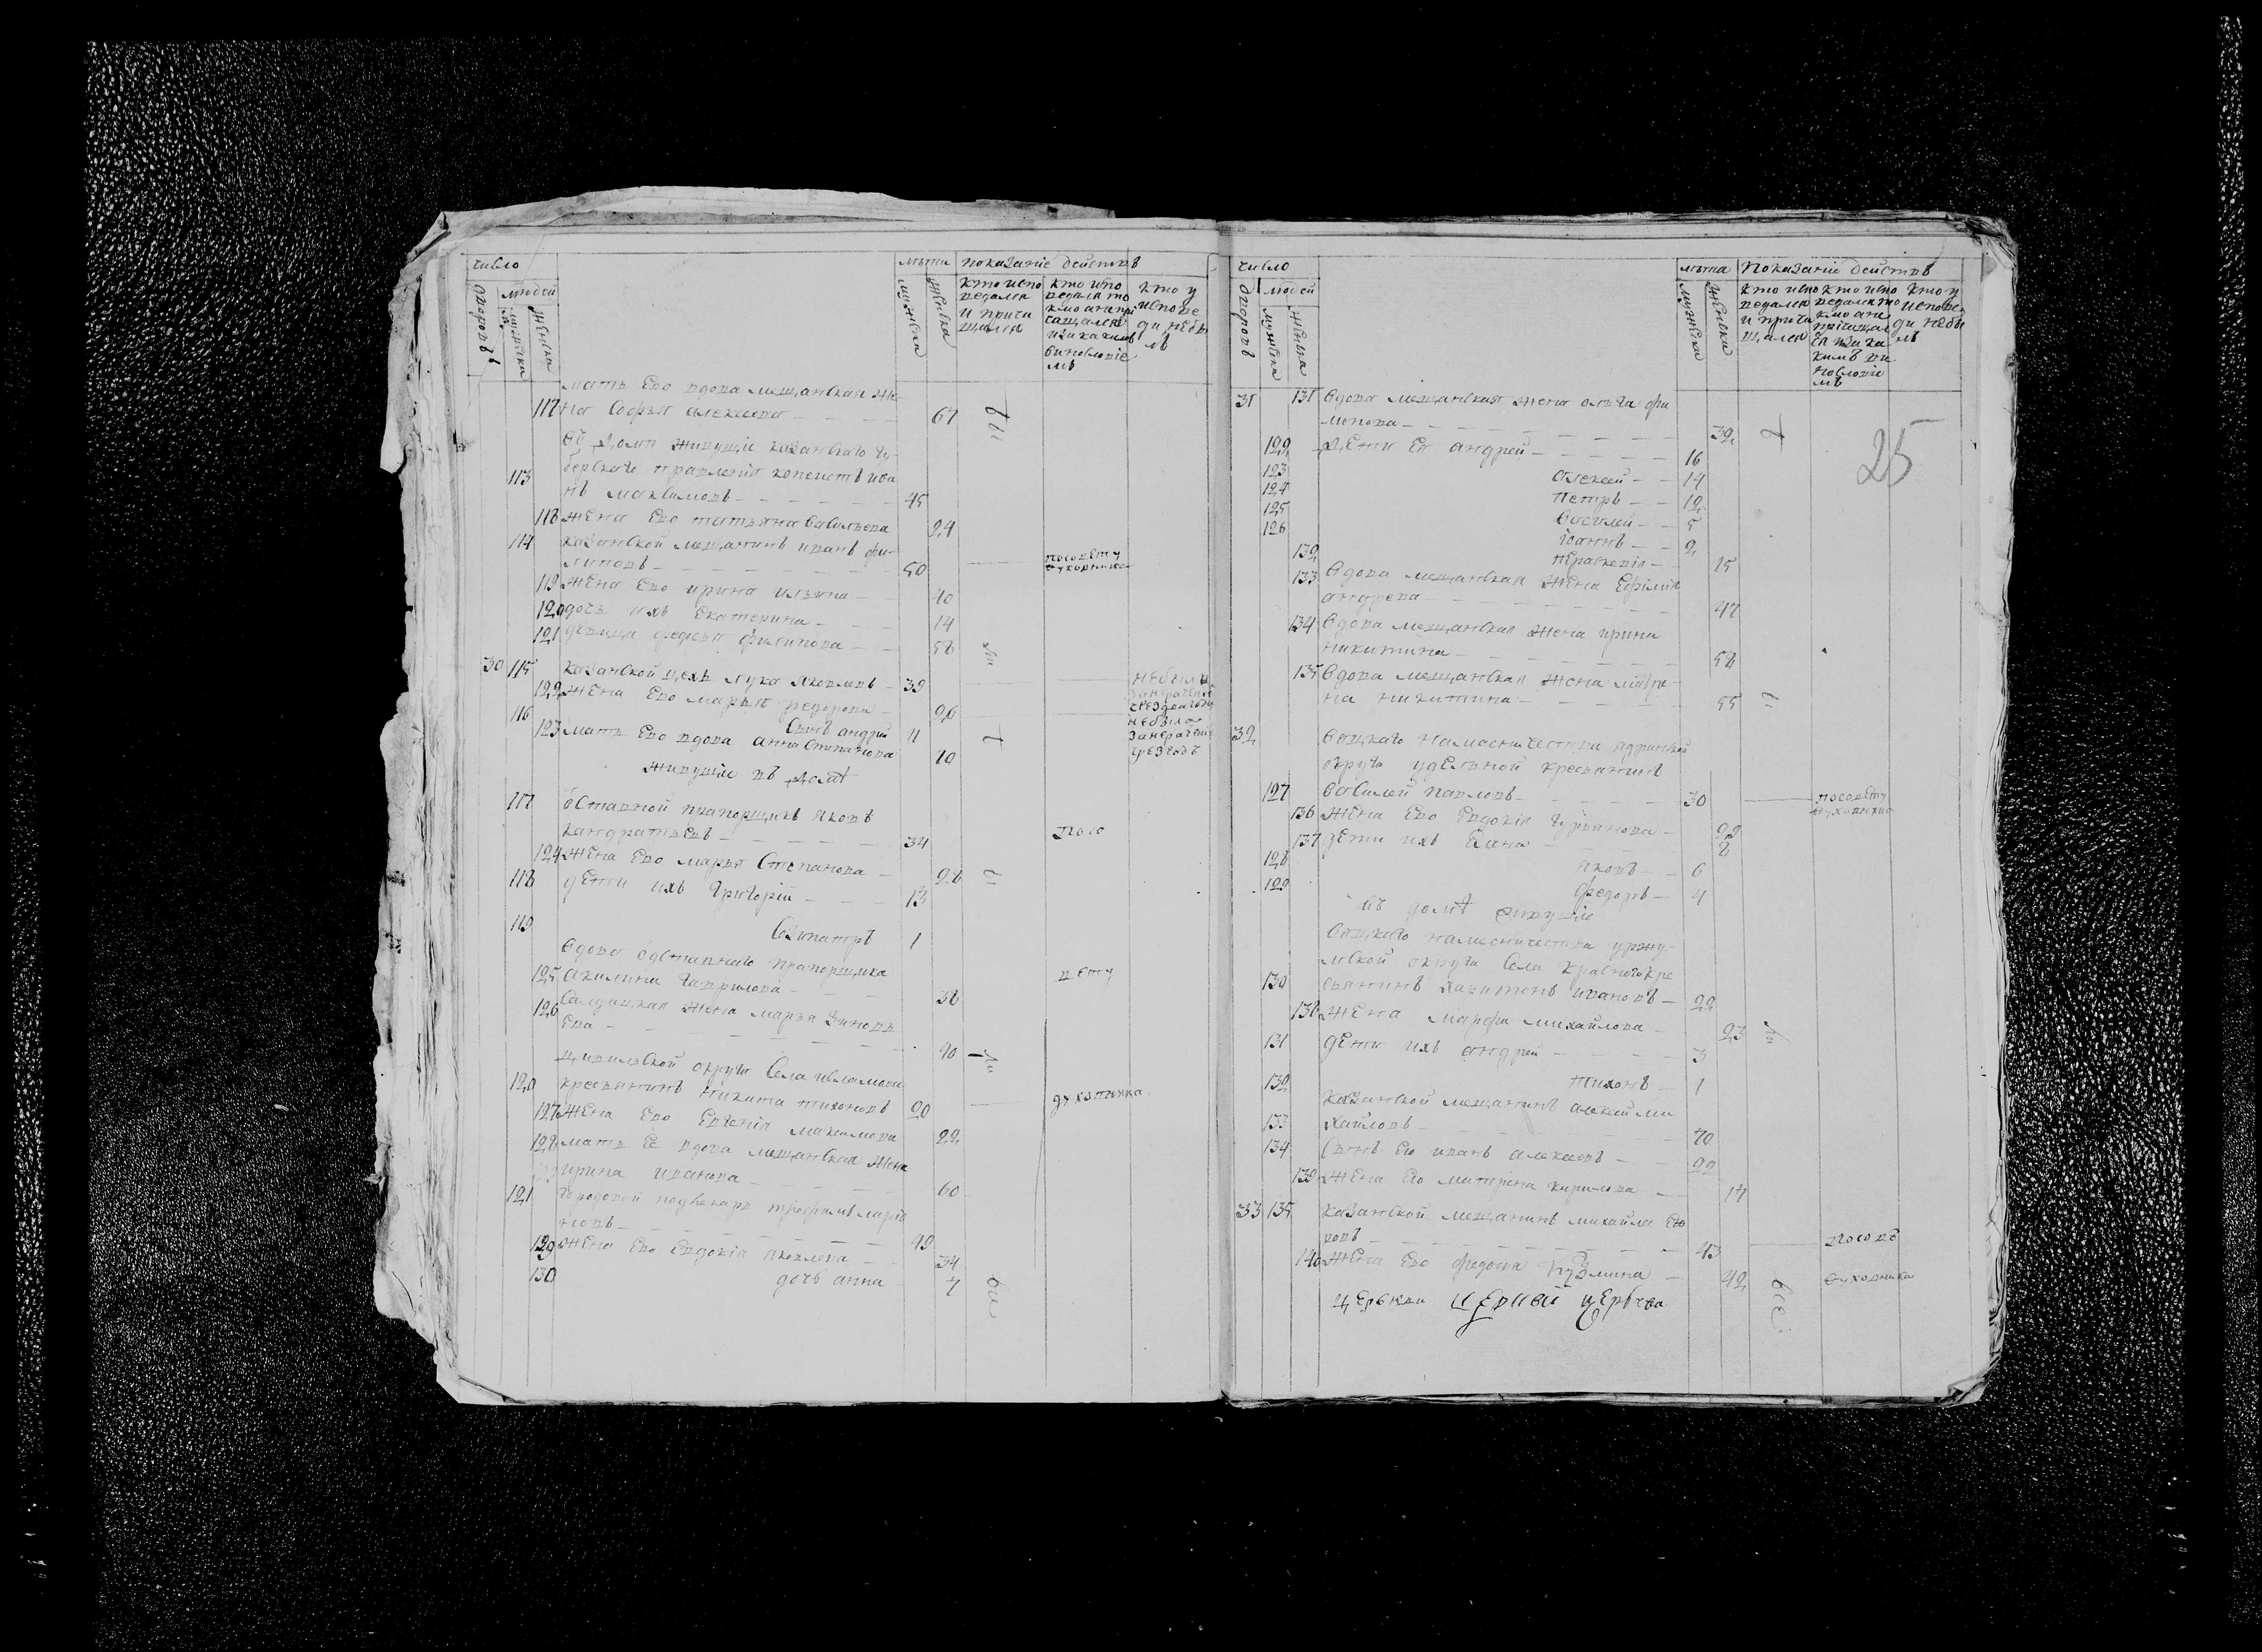 число
лѣта показаніе действъ
дворовъ
людей
мужеска
женска
мужеска
женска
кто испо
ведался
и прича
щался
кто испо
ведался то
кмо а не при
чащался
и за какимъ
винословіе
мъ
кто у
испове
ди не бы
лъ
мать Ево вдова мещанская же
117 на Софья алексеева 67
въ домѣ живущіе казанскаго гу-
бернскаго правленія
113 копеистъ ива
нъ максимовъ 45
118 жена Ево татьяна васильева 24
114 казанской мещанинъ иванъ фи-
липовъ 50 по совету
духовника
119 жена Ево ирина ильина 40
120 дочь ихъ Екатерина 14
121 девица федосья филипова 58
30 115 казанской цехъ лука яковлевъ 39 не были
122 жена Ево марья федорова 26
116 сынъ андрей 11
123 мать Ево вдова анна степанова 70
живущіе въ домѣ
117 отставной прапорщикъ яковъ
кандратьевъ 34 по со
124 жена Ево марья Степанова 28
118 дети ихъ григорій 13
119 Созипатръ 1
вдова отставнаго прапорщика
125 акилина гаврилова 38 вету
126 Салдацкая жена марья Зиновь
Ева 40
цывильской округи Села
120 кресьянинъ никита тихоновъ 20 духовника
127 жена Ево Евгенія максимова 22
128 мать Ее вдова мещанская жена
ирина иванова 60
121 городовой подлекарь трофимъ ларіо
новъ 49
129 жена Ево Евдокія яковлева 34
130 дочь анна 7
число
лѣта Показаніе действъ
дворовъ
людей
мужеска
женска
мужеска
женска
кто испо
ведался
и прича
щался
кто испо
ведался то
кмо а не
причащал
ся и за ка
кимъ ви
нословіе
мъ
кто у
испове
ди не бы
лъ
25
31 131 вдова мещанская жена ольга фи
липова 39
122 дети Ея андрей 16
123 алексей 14
124 петръ 12
125 василей 5
126 іоаннъ 2
132 параскевія 15
133 вдова мещанская жена Ефимія
андреева 47
134 вдова мещанская жена ирина
никитина 58
135 вдова мещанская жена матре-
на никитина 55
32 вяцкаго намесничества ядринской
округи удельной кресьянинъ
127 василей павловъ 30 по совету
духовника
136 жена Ево Евдокія 22
137 дети ихъ Елена 8
128 яковъ 6
129 федоръ 4
въ домѣ живущіе
вяцкаго намесничества уржу-
мской округи Села краснаго кре
130 сьянинъ харитонъ ивановъ 22
138 жена марфа михайлова 23
131 дети ихъ андрей 3
132 тихонъ 1
казанской мещанинъ алексей ми
133 хайловъ 70
134 Сынъ Его иванъ алексеевъ 22
139 жена Его матрена кирилова 17
33 135 казанской мещанинъ михайла Его
ровъ 43 по сове
140 жена Ево федосья кузмина 42 духовника